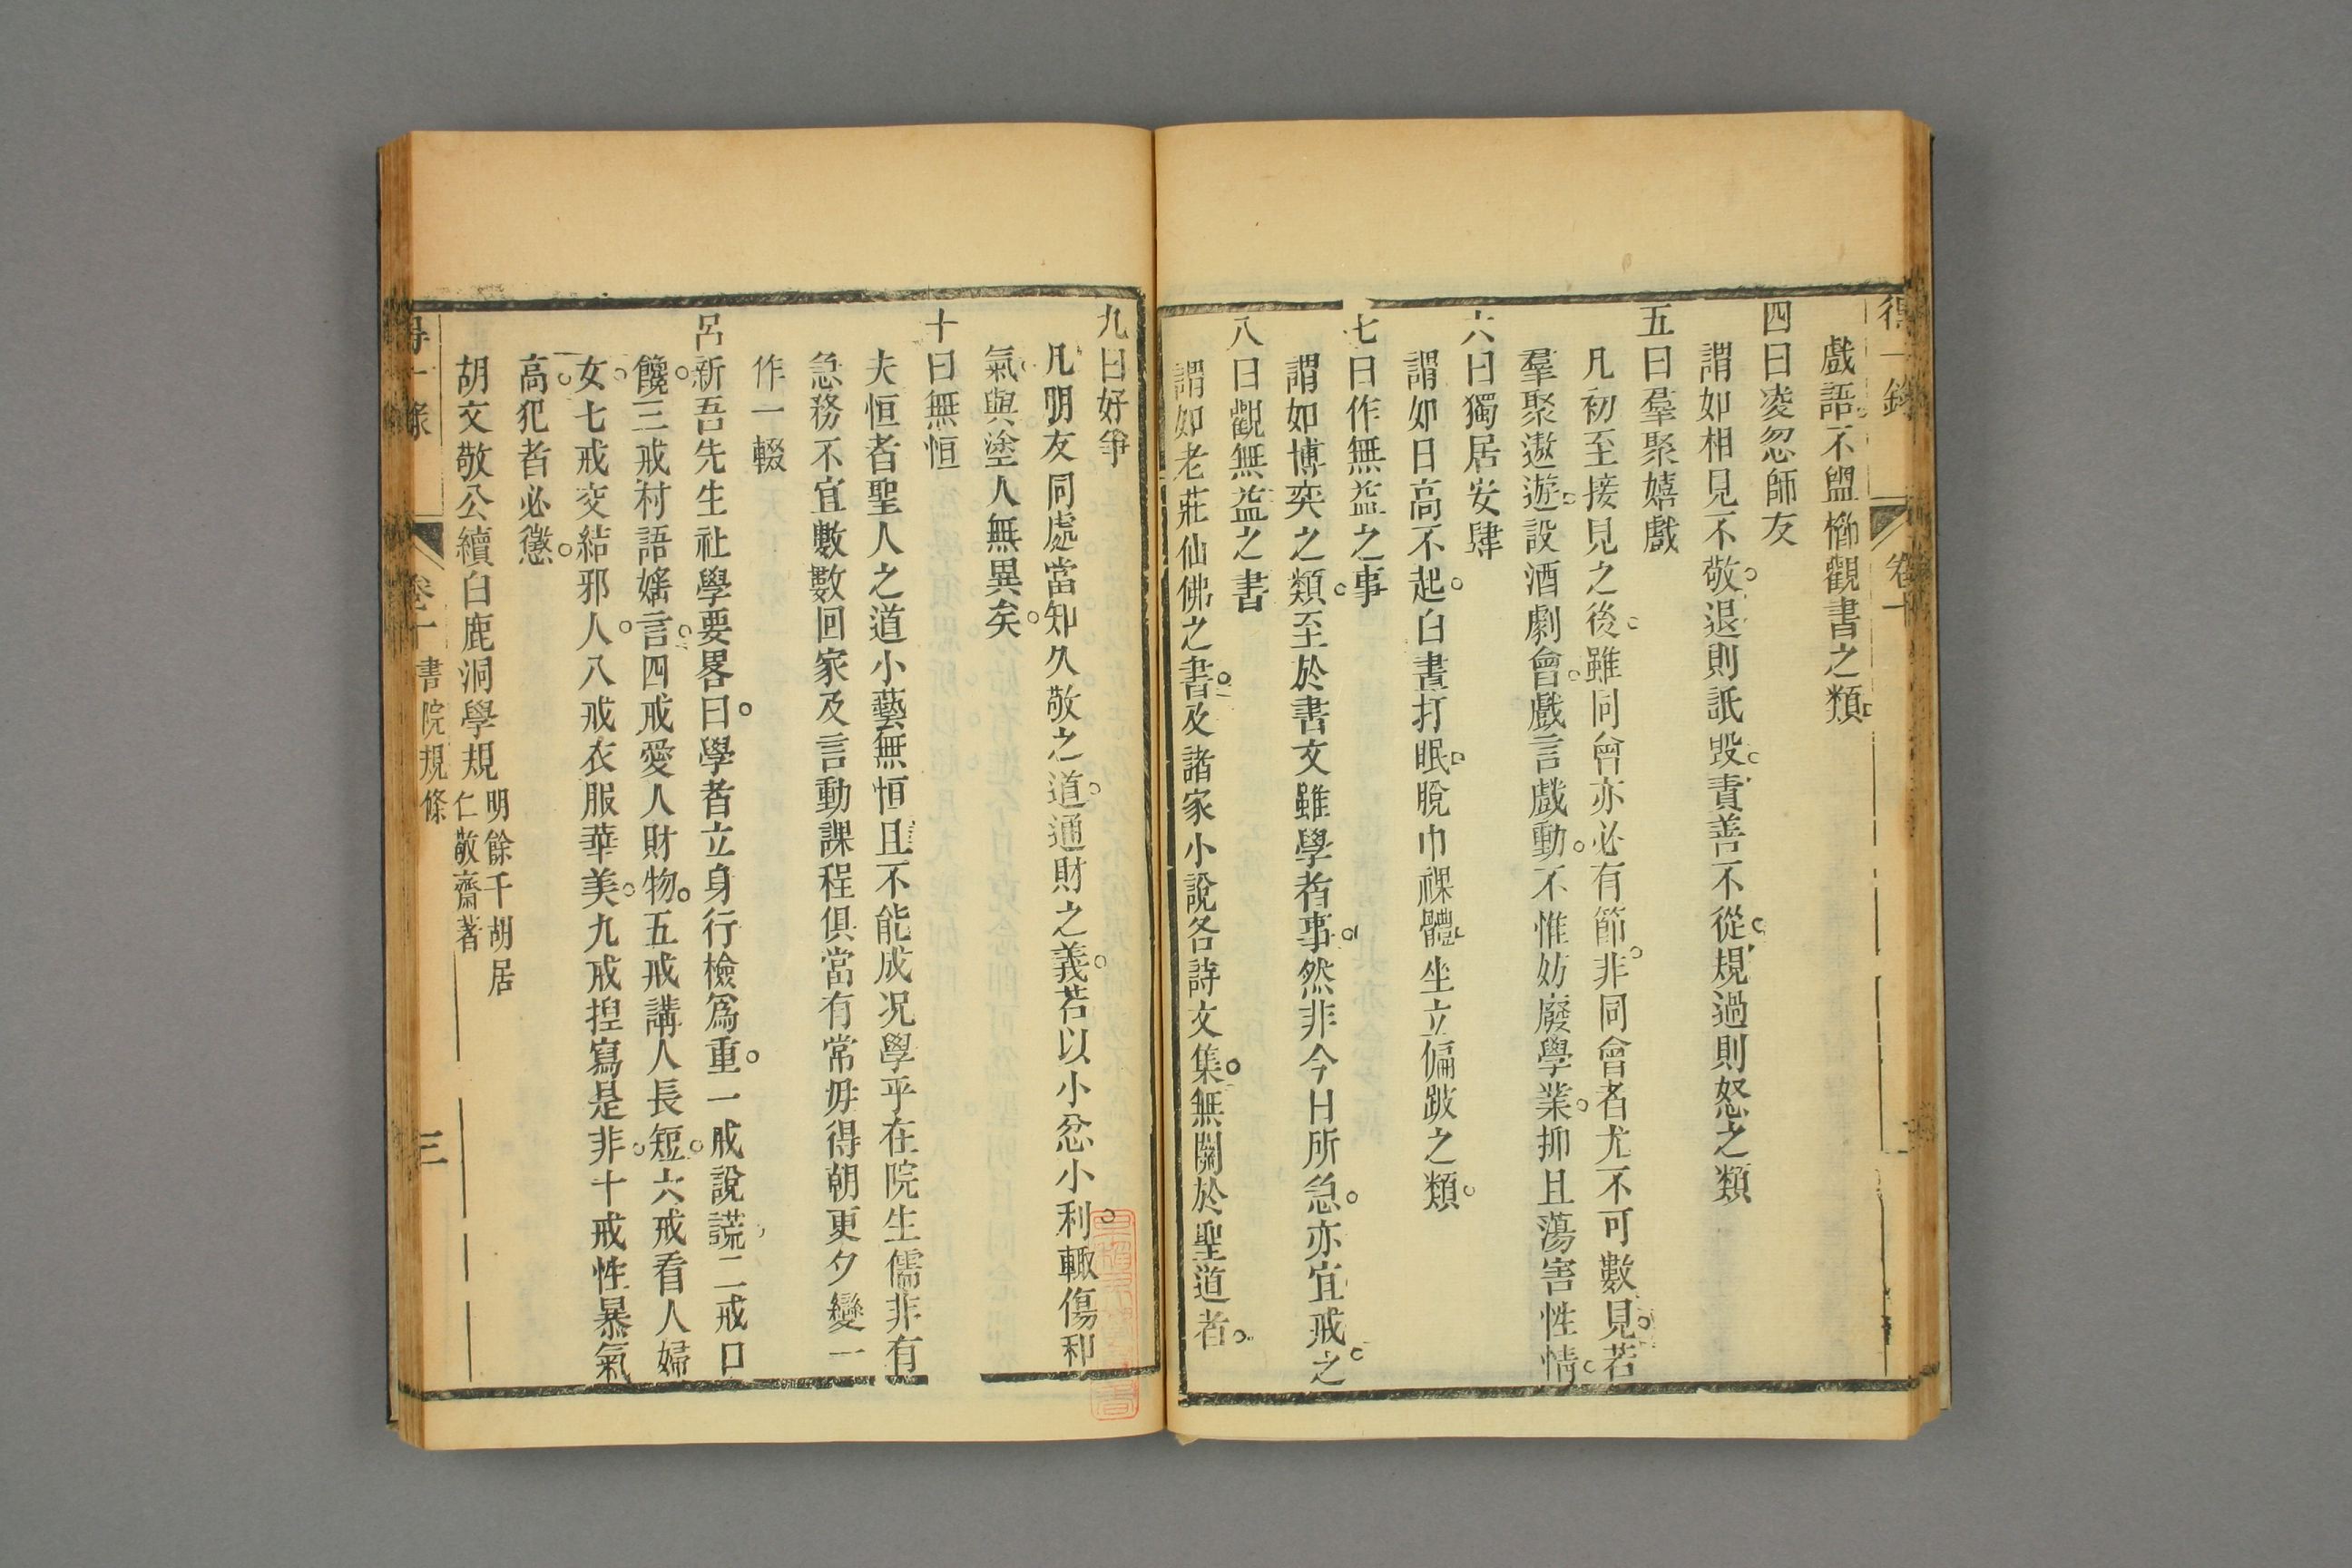 得一錄
卷十
戲語不盥櫛觀書之類
四曰凌忽師友
謂如相見不敬退則詆毀責善不從規過則怒之類
五曰羣聚嬉戲
凡初至接見之後雖同會亦必有節非同會者尤不可數見若
羣聚遨遊設酒劇會戲言戲動不惟妨廢學業抑且蕩害性情
六曰獨居安肆
謂如日高不起白晝打眠脫巾裸體坐立偏跛之類
七曰作無益之事
謂如博奕之類至於書文雖學者事然非今日所急亦宜戒之
八曰觀無益之書
謂如老莊仙佛之書及諸家小說各詩文集無關於聖道者
九曰好爭
凡朋友同處當知久敬之道通財之義若以小忿小利輙傷和
氣與塗人無異矣
十曰無恒
夫恒者聖人之道小藝無恒且不能成况學乎在院生儒非有
急務不宜數數回家及言動課程俱當有常毋得朝更夕變一
作一輟
呂新吾先生社學要畧曰學者立身行檢爲重一戒說謊二戒口
饞三戒村語媱言四戒愛人財物五戒講人長短六戒看人婦
女七戒交結邪人八戒衣服華美九戒捏寫是非十戒性暴氣
高犯者必懲
胡文敬公續白鹿洞學規 明餘干胡居
仁敬齋著
得一錄
卷十 書院規條
三